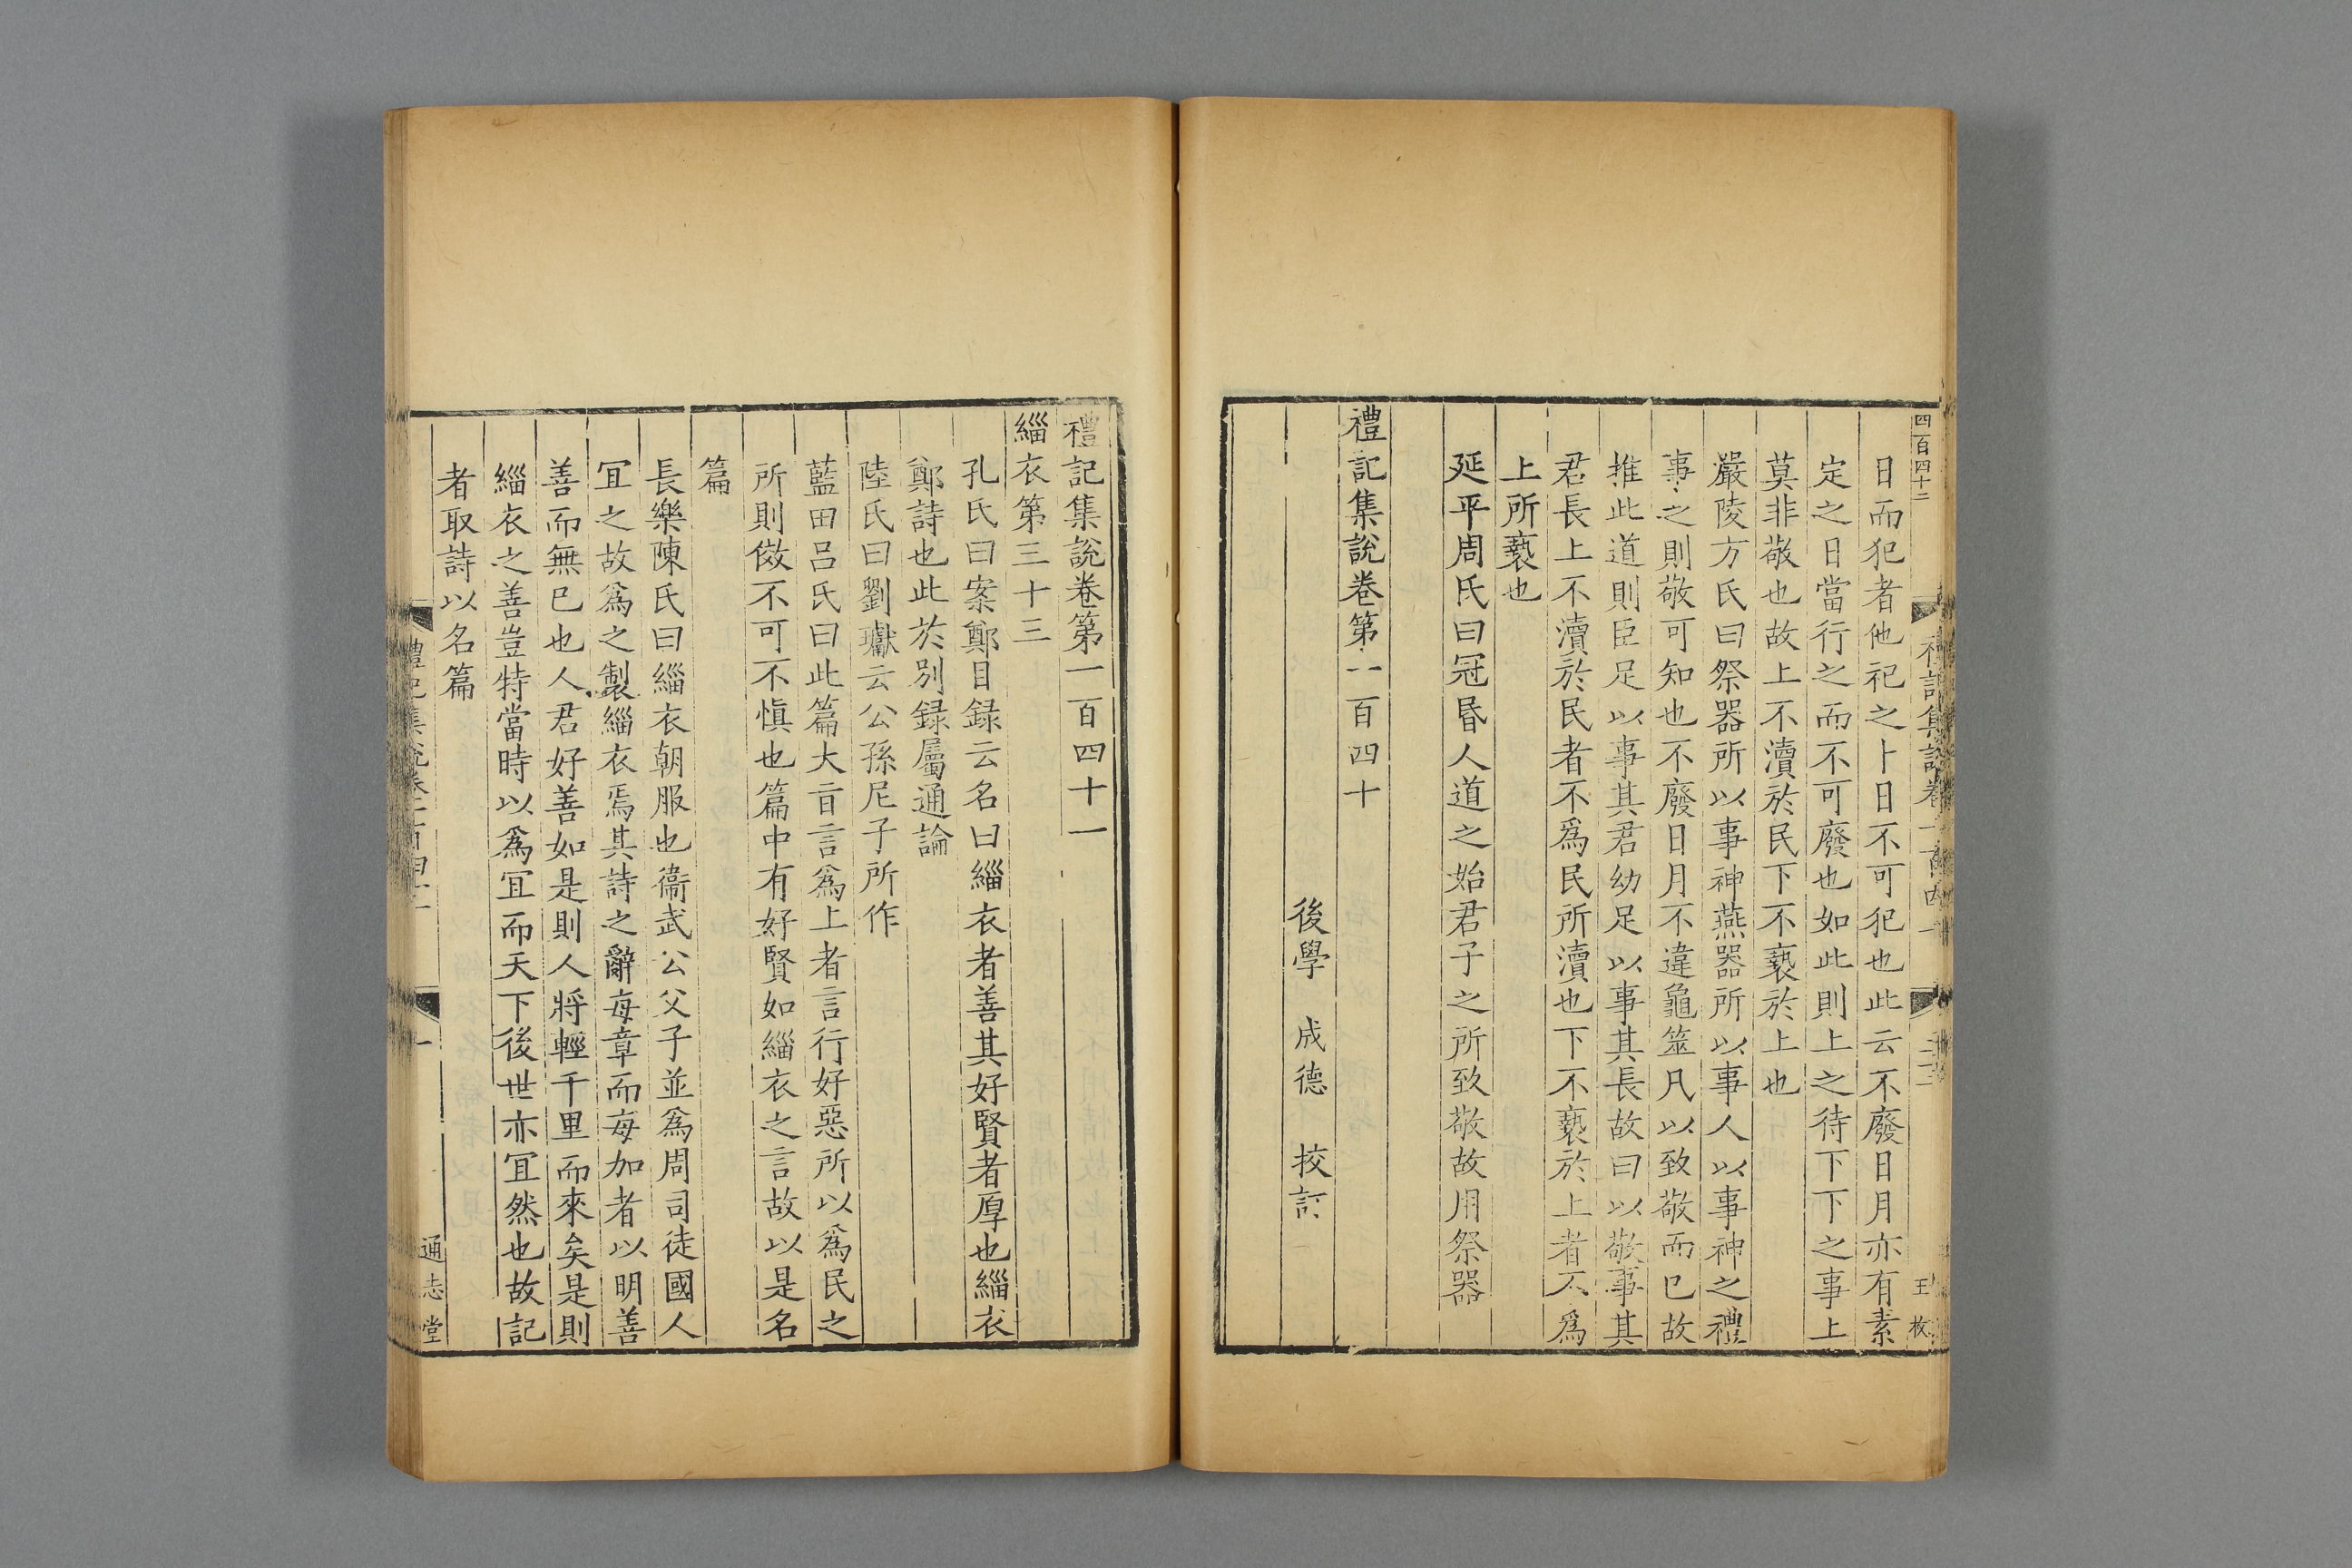 四百四十二
日而犯者他祀之卜日不可犯也此云不廢日月亦有素
定之日當行之而不可廢也如此則上之待下下之事上
莫非敬也故上不瀆於民下不褻於上也
嚴陵方氏曰祭器所以事神燕器所以事人以事神之禮
事之則敬可知也不廢日月不違龜筮凡以致敬而已故
推此道則臣足以事其君幼足以事其長故曰以敬事其
君長上不瀆於民者不爲民所瀆也下不褻於上者不爲
上所褻也
延平周氏曰冠昬人道之始君子之所致敬故用祭器
禮記集說卷第一百四十
後學 成德 挍訂
禮記集說卷第一百四十一
緇衣第三十三
孔氏曰案鄭目録云名曰緇衣者善其好賢者厚也緇衣
鄭詩也此於別録屬通論
陸氏曰劉瓛云公孫尼子所作
藍田呂氏曰此篇大㫖言爲上者言行好惡所以爲民之
所則傚不可不慎也篇中有好賢如緇衣之言故以是名
篇
長樂陳氏曰緇衣朝服也衞武公父子並爲周司徒國人
冝之故爲之製緇衣焉其詩之辭每章而每加者以明善
善而無已也人君好善如是則人將輕千里而來矣是則
緇衣之善豈特當時以爲冝而天下後世亦冝然也故記
者取詩以名篇
禮記集說卷一百四十一
一
通志堂